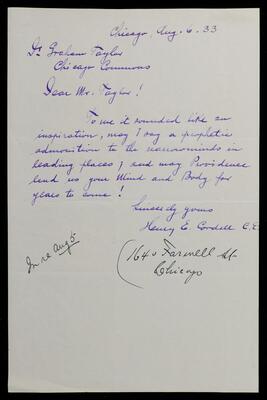 Chicago, Aug. 6. 33
Dr Graham Taylor
Chicago Commons
Dear Mr. Taylor!
To me it sounded like an
inspiration, may I say a prophetic
admonition to the narrowminds in
leading places; and may Providence
lend us your Mind and Body for
years to come!
Sincerely yours
Henry E. Cordell C.E.
1640 Farwell St
Chicago
In re Aug 5